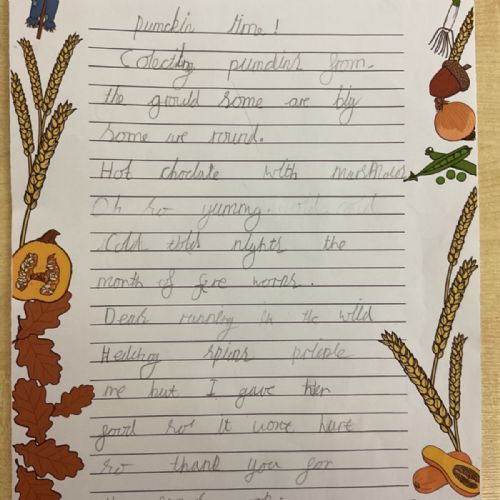 pumckin time!
Colecting pumckins from
the grould some are big
some are round.
Hot choclate with marshmalows
Oh so yummy.
Cold nights the
month of fire works.
Dears running in the wild
Hedchog spins prickle
me but I gave her
good so it wont hurt
so thank you for